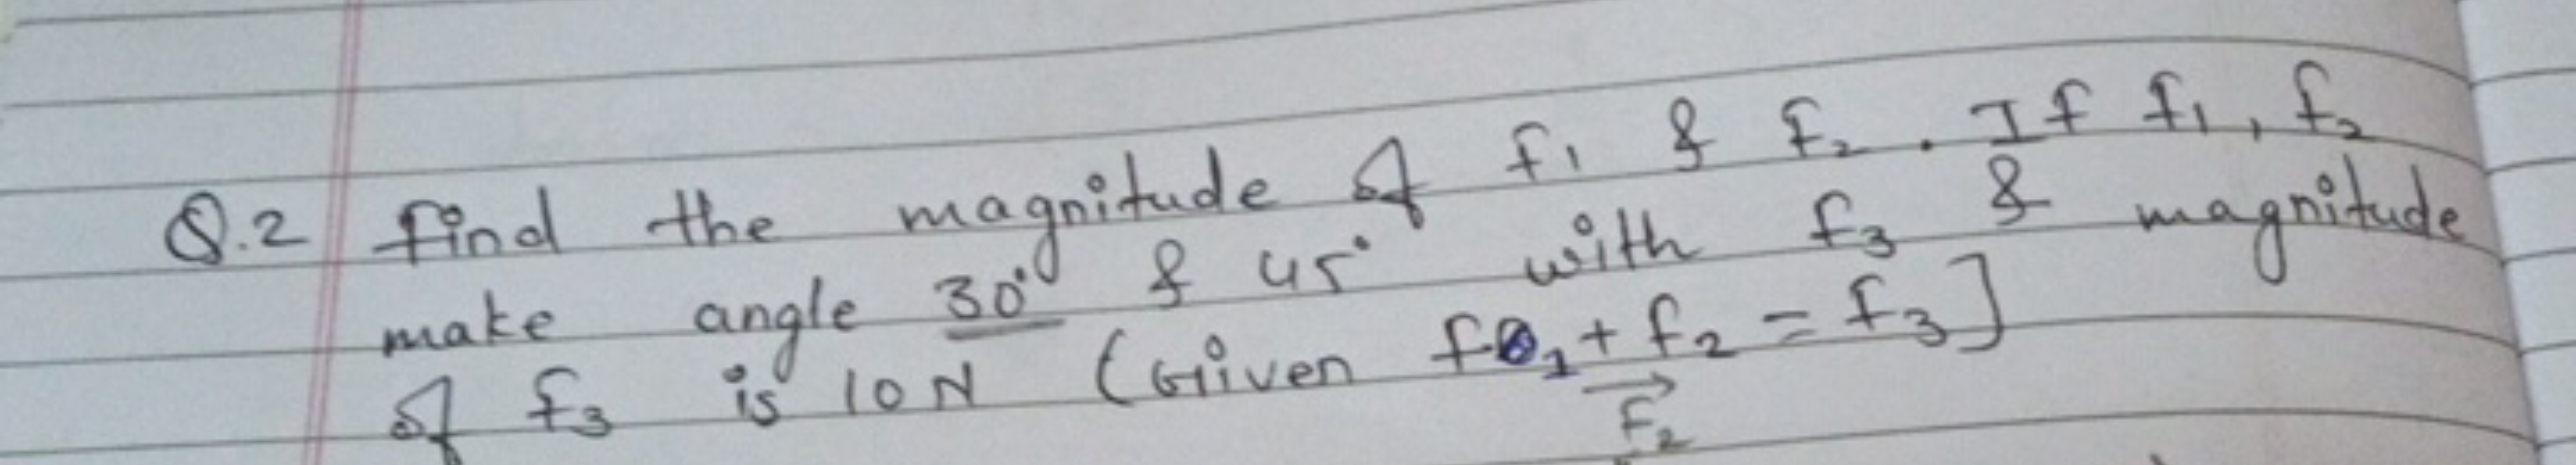 Q.2 find the magnitude of f₁ & f₂. If f₁, f₂
make angle 30° & 45° with f₃ & magnitude
of f₃ is 10 N (Given f₁ + f₂ = f₃]
F₂